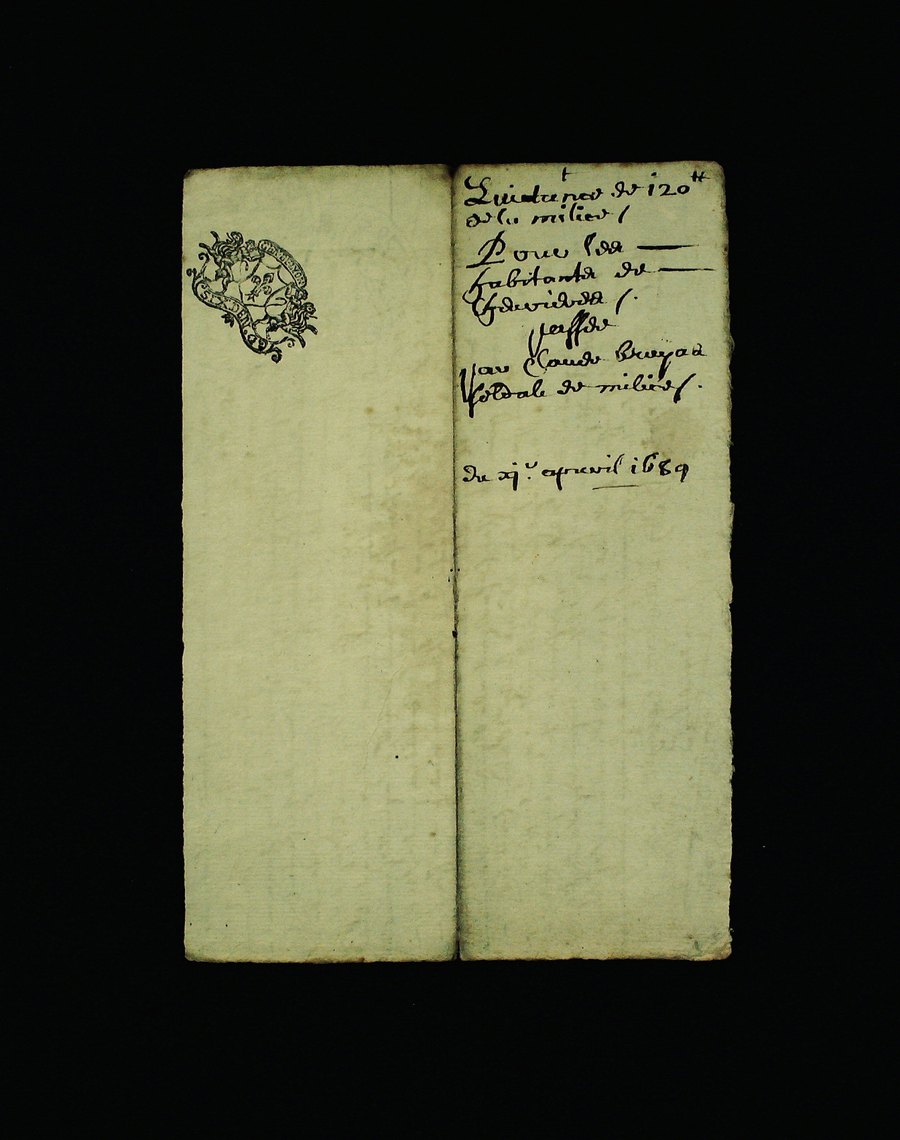 Quictance de 120 ₶
de la milice /
Pour les
habitants de
passée
par Claude Bruyas
soldat de milice /.
du xj.e apvril 1689